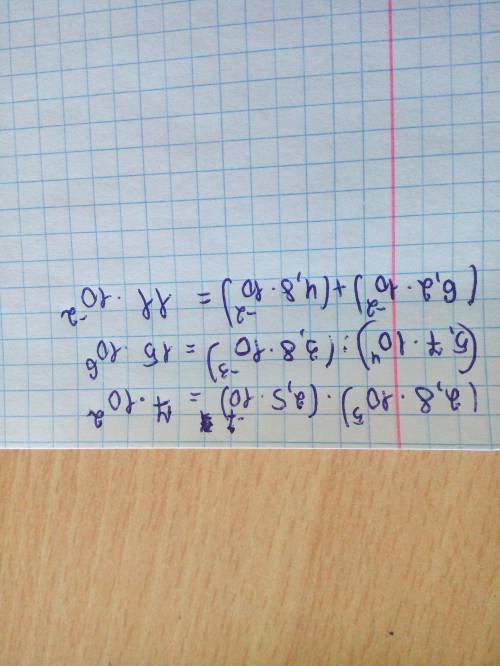 (2,8 · 10⁵) · (2,5 · 10⁻⁷) = 7 · 10²
(5,7 · 10⁴) : (3,8 · 10⁻³) = 15 · 10⁶
(6,2 · 10⁻²) + (4,8 · 10⁻²) = 11 · 10⁻²